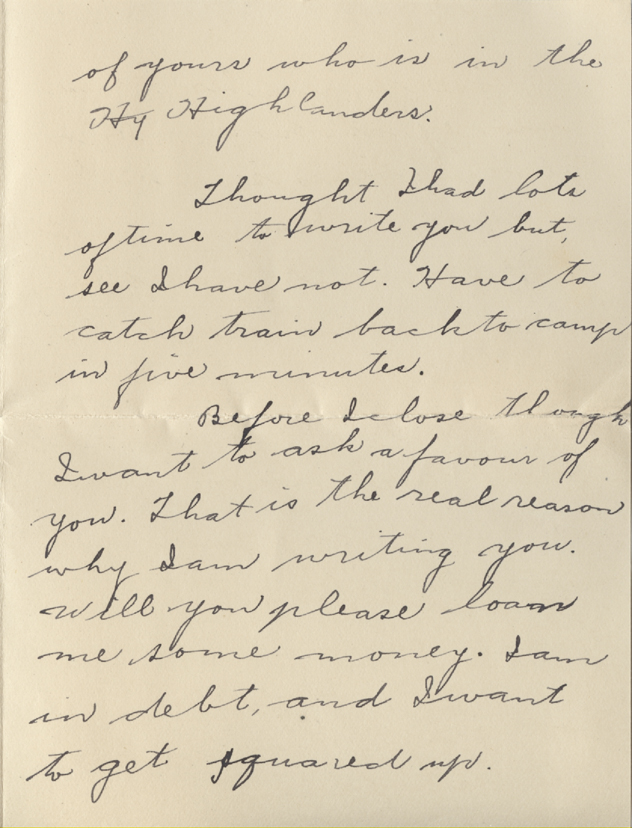 of yours who is in the
Hy Highlanders.
Thought I had lots
of time to write you but,
see I have not. Have to
catch train back to camp
in five minutes.
Before I close though
I want to ask a favour of
you. That is the real reason
why I am writing you.
Will you please loan
me some money. I am
in debt, and I want
to get squared up.